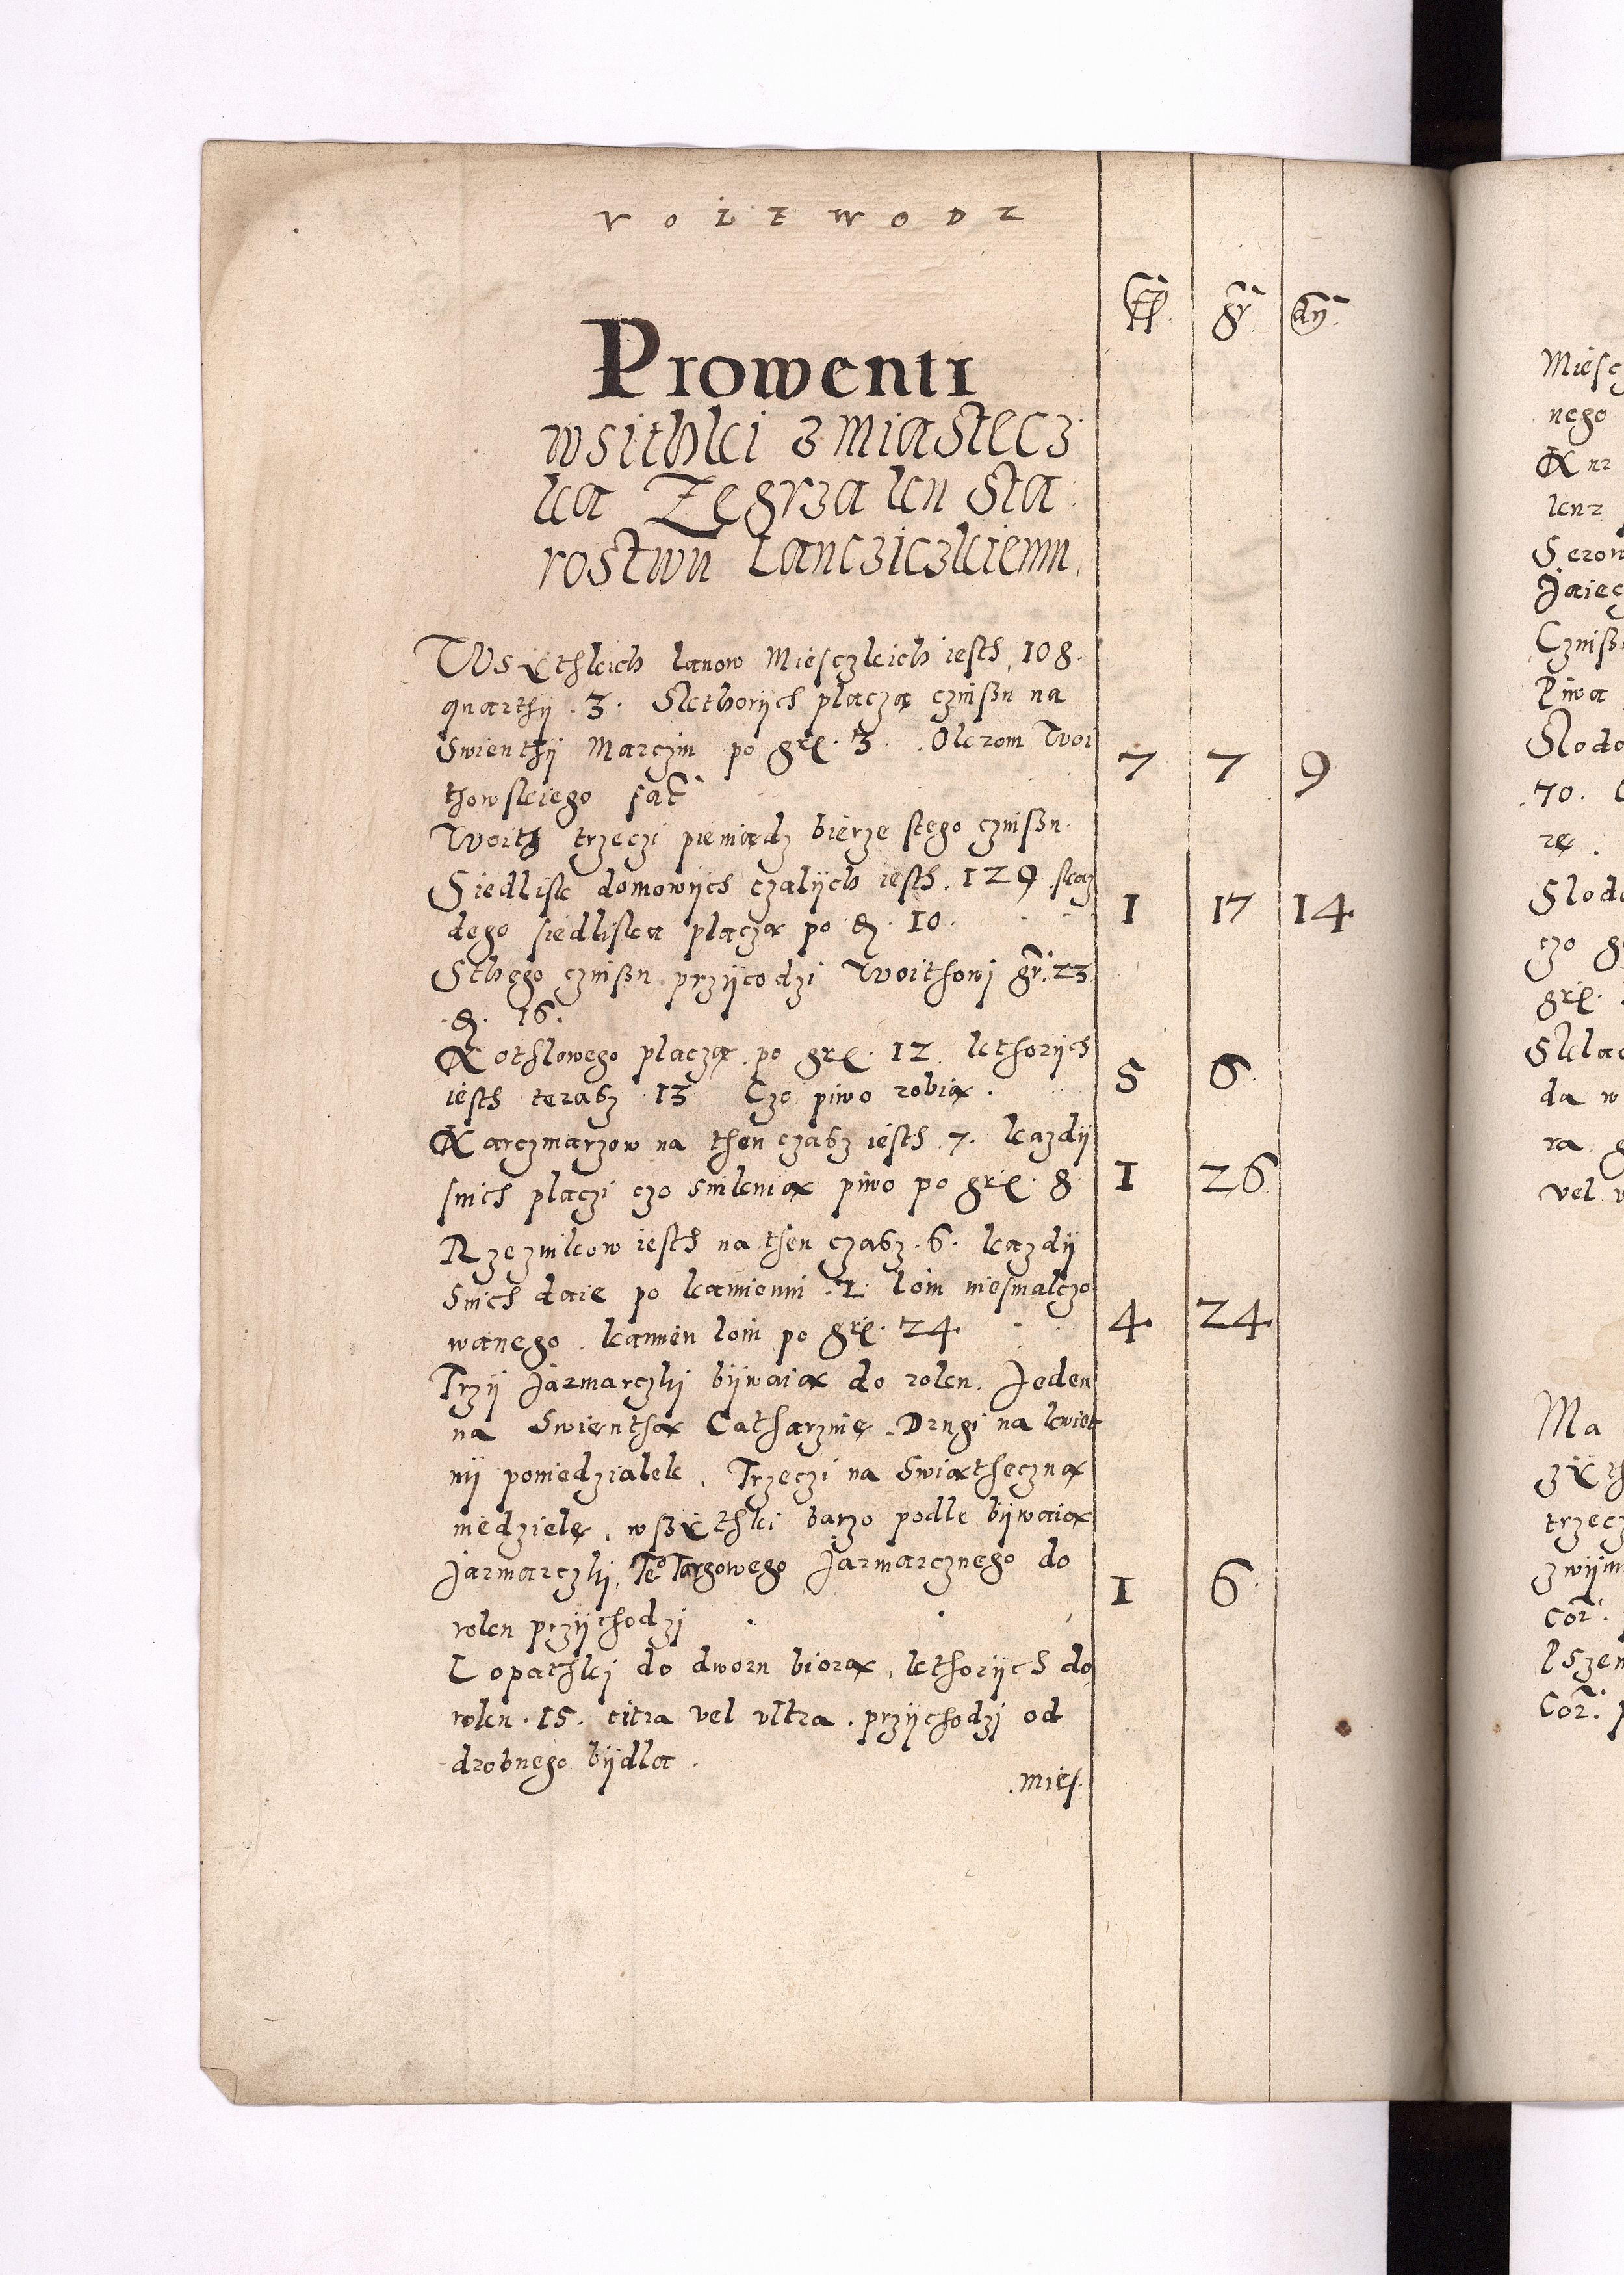 VOIEWODZ
fl. gr. dn.
Prowenti
wsithki z miastecz
ka Zegrza ku Sta
rostwu Lancziczkiemu.
Wsÿthkich lanow Miesczkich iesth 108.
quarthÿ .3. Skthorÿch placzą czinßu na
Swienthÿ Marczin po grl. 3. Okrom Woi 7 7 9
thowskiego fac
Woith trzeczi pieniądz bierze stego czinßu.
Siedlisk domowÿch czalÿch iesth. 129 skaz
dego siedliska placzą po d. 10. 1 17 14
Sthego czinßu przÿcodzi Woithowj gr. 23.
d. 16.
Kothlowego placzą po grl. 12 kthorÿch
iesth terasz 13 Czo piwo robią. 5 6
Karczmarzow na then czasz iesth 7. kazdÿ
snich placzi czo sinkuią piwo po grl. 8. 1 26
Rzeznikow iesth na then czasz .6. kazdÿ
Snich daie po kamieniu .1. loiu niesmalczo
wanego. kamien loiu po grl. 24 4 24
Trzÿ Jarmarczki bÿwaią do roku. Jeden
na Swienthą Catharzinę. Drugi na kwieth
nÿ poniedzialek. Trzeczi na Swiątheczną
niedzielę, wßÿthki barzo podle bÿwaią
Jarmarczki, Te° Targowego Jarmarcznego do
roku przÿchodzj 1 6
Lopathkj do dworu biorą, kthorÿch do
roku .15. citra vel vltra. przÿchodzj od
drobnego bÿdla.
.mies.
Miescz
nego
Slodo
70.
Slod
czo
grl.
da w
ra
vel
Ma
trzecz
Cor.
Cor.